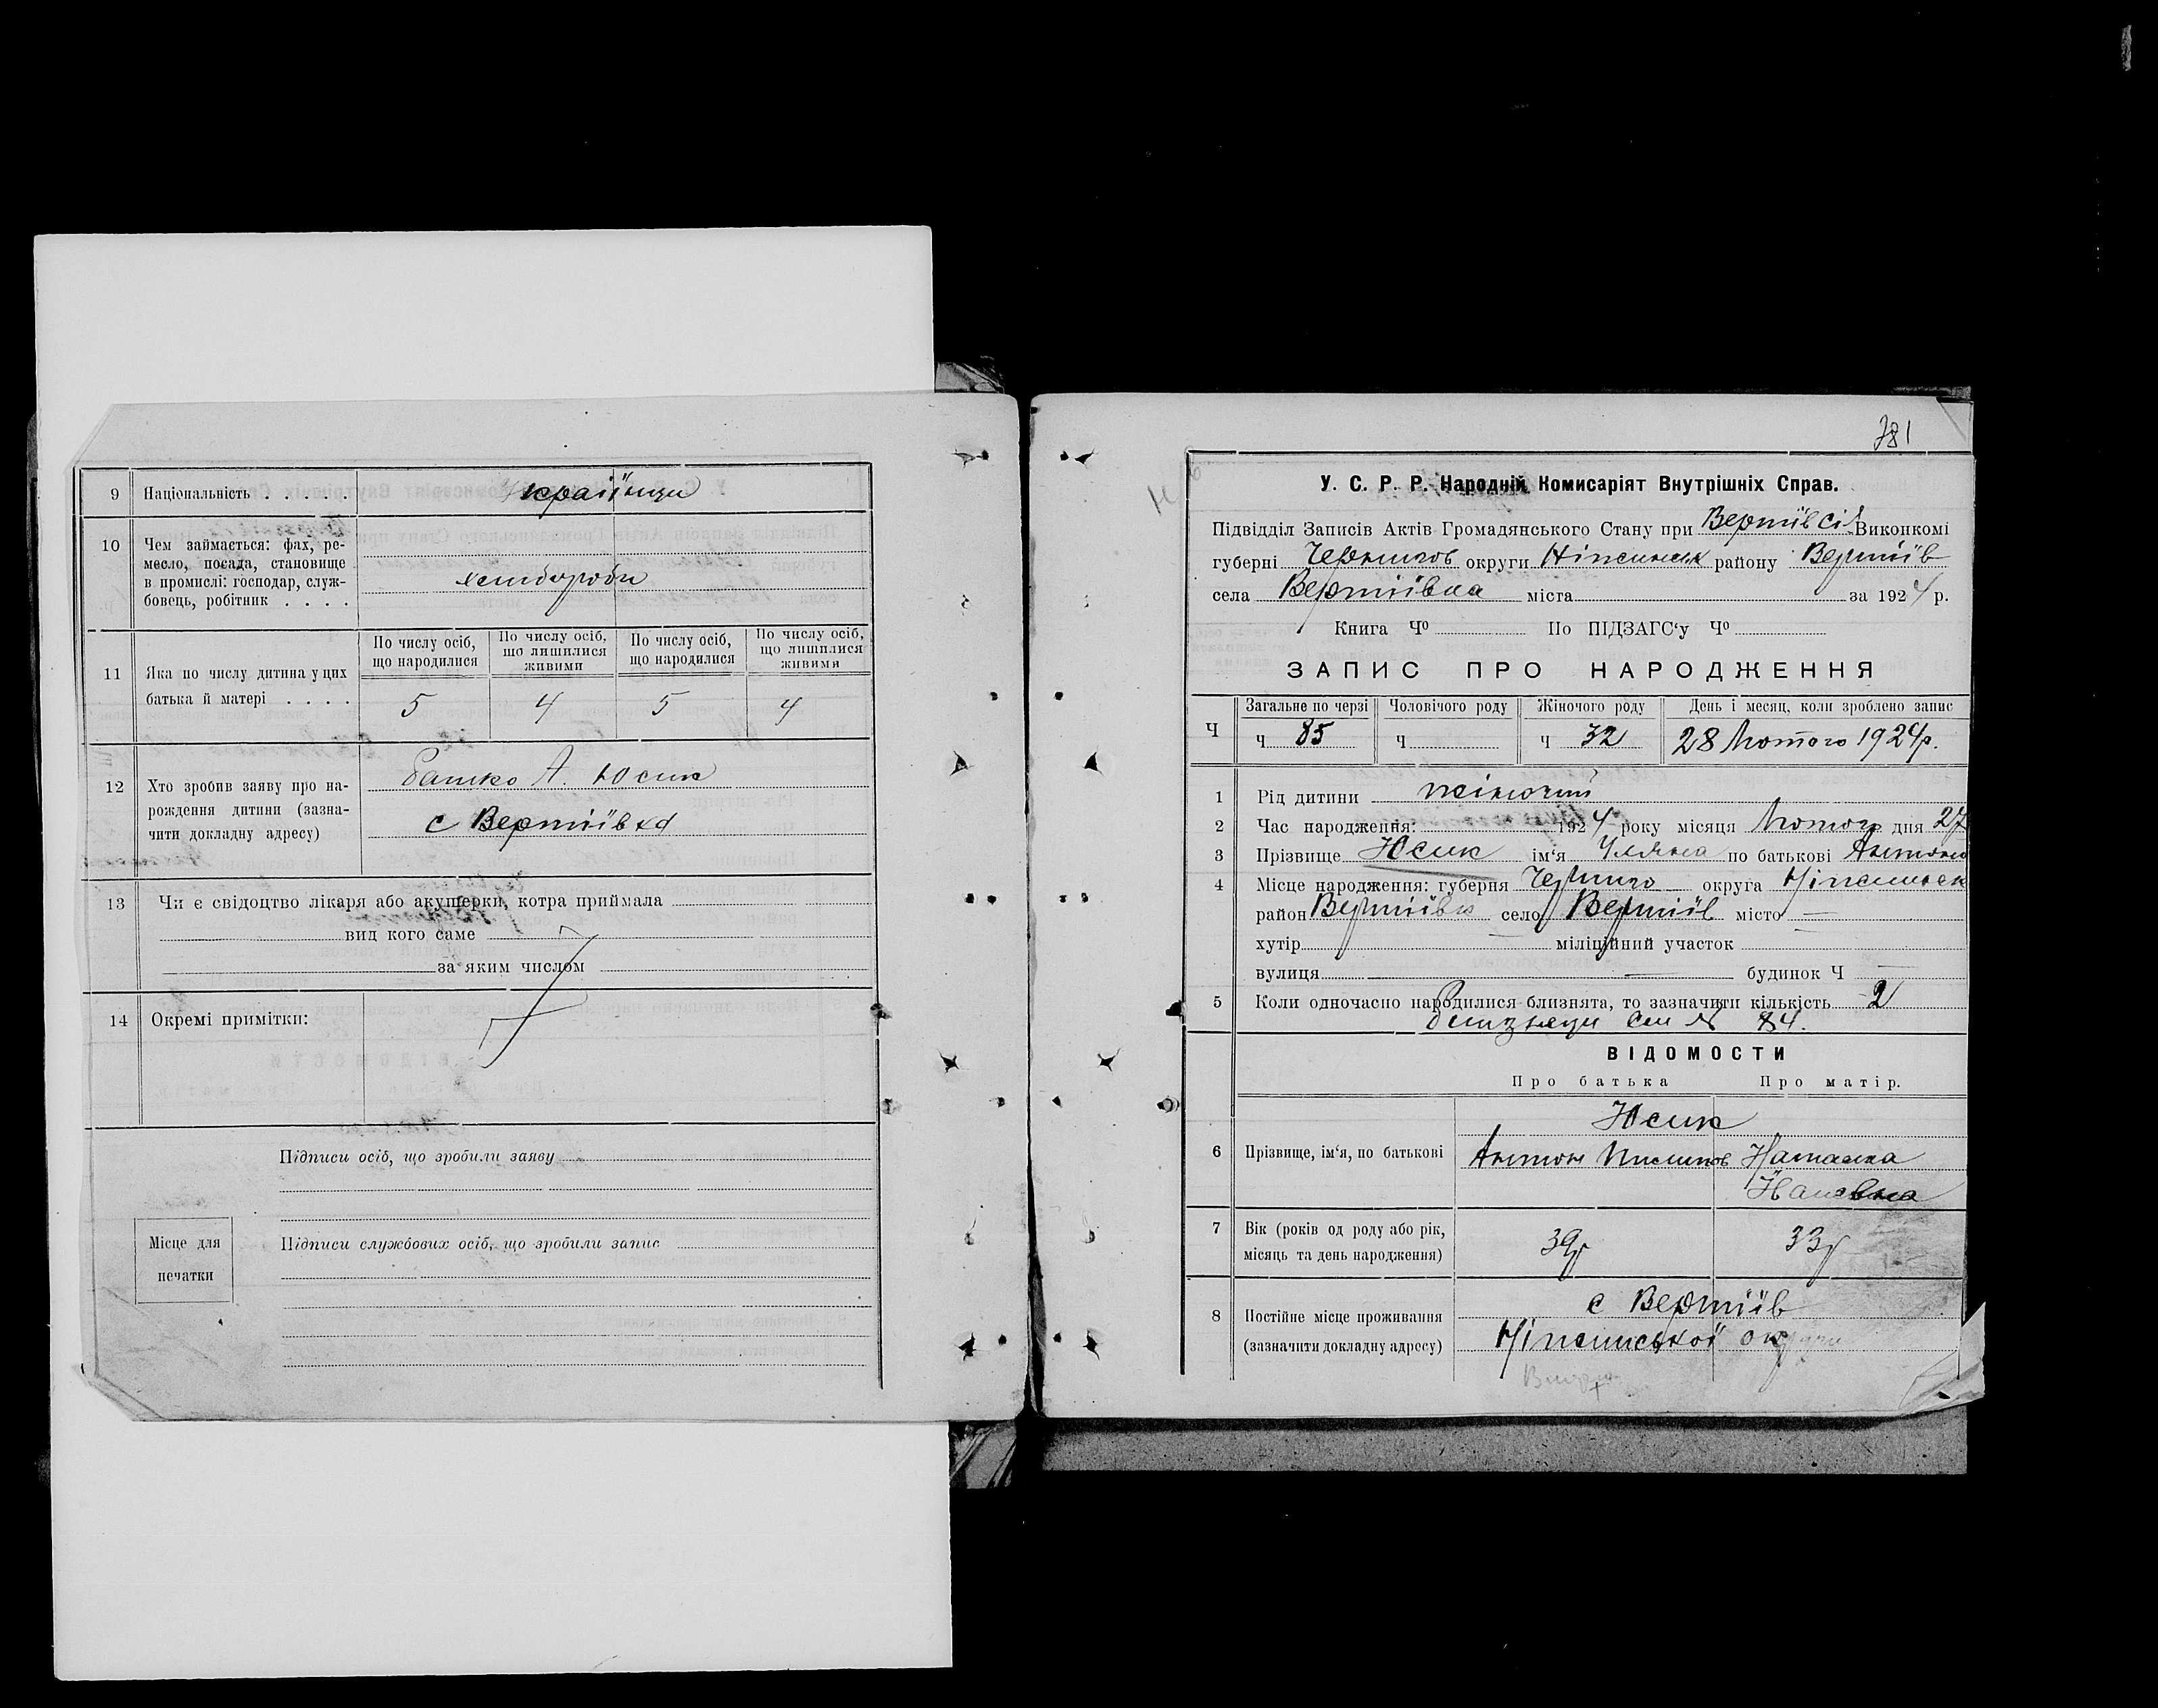 9 Національність . . . . . Українци
10 Чем займається: фах, ре-
месло, посада, становище
в промислі: господар, служ-
бовець, робітник . . . . хлибороби
По числу осіб, що народилися
По числу осіб, шо лишилися живими
По числу осіб, що народилися
По числу осіб, що лишилися живими
11 Яка по числу дитина у цих
батька й матері . . . . 5 4 5 4
12 Хто зробив заяву про на-
рождення дитини (зазна-
чити докладну адресу)
Батько А. Юсик
с Вертіївка
13 Чи є свідоцтво лікаря або акушерки, котра приймала
вид кого саме
за яким числом
14 Окремі примітки:
Підписи осіб, що зробили заяву
Місце для
печатки
Підписи службових осіб, що зробили запис
381
У. С. Р. Р. Народній Комисаріят Внутрішніх Справ.
Підвідділ Записів Актів Громадянського Стану при Вертіїв сіл Виконкомі
губерні Чернигов округи Ніжинськ району Вертіїв
села Вертіївка міста за 1924 р.
Книга Ч⁰ По ПІДЗАГС‘у Ч⁰
ЗАПИС ПРО НАРОДЖЕННЯ
Загальне по черзі Чоловічого роду Жіночого роду День і месяц, коли зроблено запис
Ч ч 85 ч ч 32 28 Лютого 1924р.
1 Рід дитини жіночий
2 Час народження: 1924 року місяця Лютого дня 27
3 Прізвище Юсик ім‘я Уляна по батькові Антонов
4 Місце народження: губерня Черниго округа Ніжинськ
район Вертіївк село Вертіїв місто —
хутір міліційний участок
вулиця — будинок Ч —
5 Коли одночасно народилися близнята, то зазначити кількість 2
близнеци см № 84.
ВІДОМОСТИ
Про батька Про матір.
Юсик
6 Прізвище, ім‘я, по батькові Антон Наталка
7 Вік (років од роду або рік,
місяць та день народження) 39р 33р
8 Постійне місце проживання
(зазначити докладну адресу)
с Вертіїв
Ніжинської округи